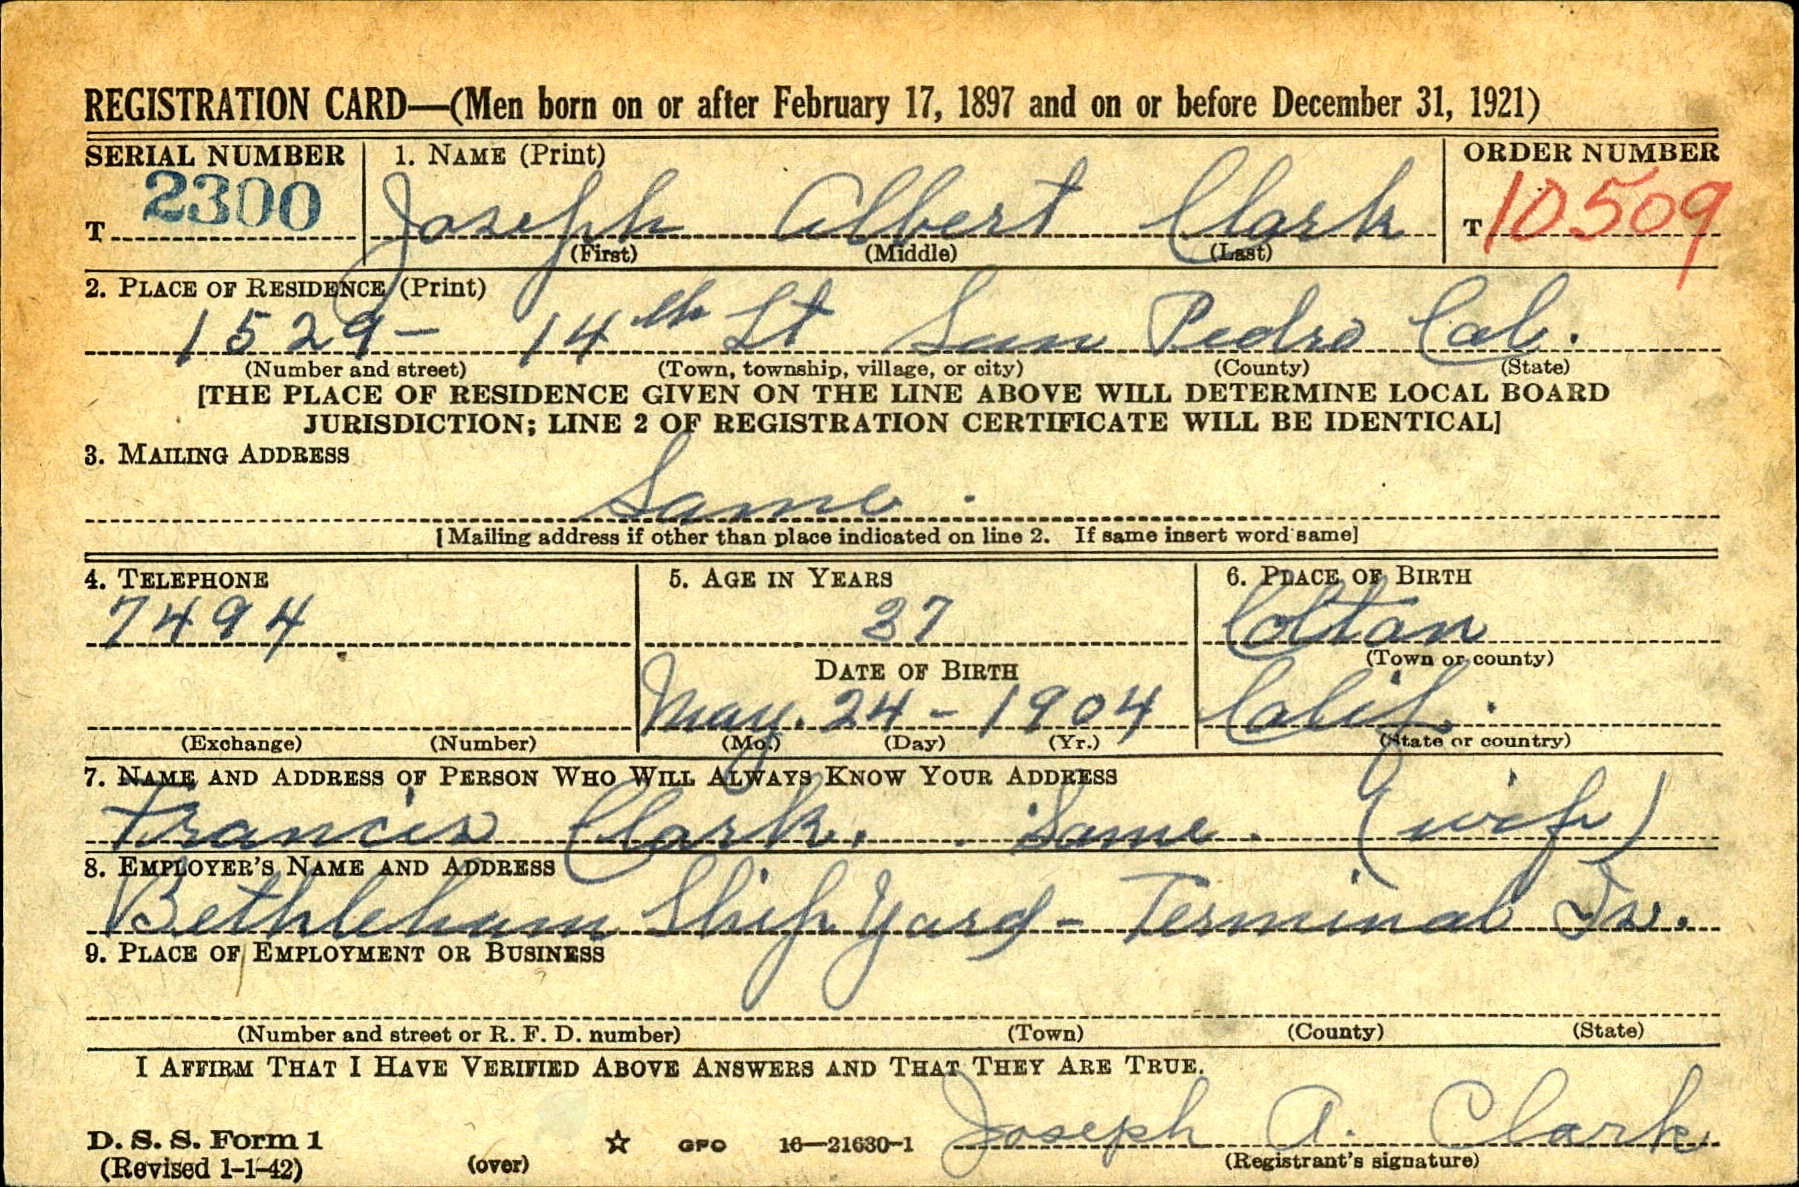 REGISTRATION CARD—(Men born on or after February 17, 1897 and on or before December 31, 1921)
SERIAL NUMBER 1. NAME (Print) ORDER NUMBER
T 2300 Joseph Albert Clark T 10509
(First) (Middle) (Last)
2. PLACE OF RESIDENCE (Print)
1529- 14th St San Pedro Cal.
(Number and street) (Town, township, village, or city) (County) (State)
[THE PLACE OF RESIDENCE GIVEN ON THE LINE ABOVE WILL DETERMINE LOCAL BOARD
JURISDICTION; LINE 2 OF REGISTRATION CERTIFICATE WILL BE IDENTICAL]
3. MAILING ADDRESS
Same.
[Mailing address if other than place indicated on line 2. If same insert word same]
4. TELEPHONE 5. AGE IN YEARS 6. PLACE OF BIRTH
7494 37 Coltan
DATE OF BIRTH (Town or county)
May. 24 - 1904 Calif.
(Exchange) (Number) (Mo.) (Day) (Yr.) (State or country)
7. NAME AND ADDRESS OF PERSON WHO WILL ALWAYS KNOW YOUR ADDRESS
Francis Clark. Same. (wife)
8. EMPLOYER'S NAME AND ADDRESS
Bethleham Ship Yard - Terminal Is.
9. PLACE OF EMPLOYMENT OR BUSINESS
(Number and street or R. F. D. number) (Town) (County) (State)
I AFFIRM THAT I HAVE VERIFIED ABOVE ANSWERS AND THAT THEY ARE TRUE.
D. S. S. Form 1 ☆ GPO 16—21630-1 Joseph A. Clark
(Revised 1-1-42) (over) (Registrant's signature)